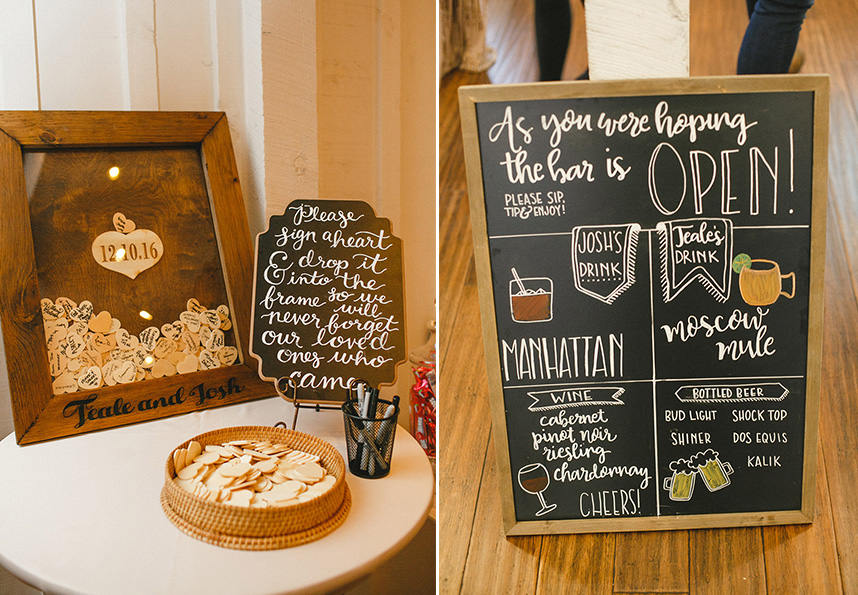 12.10.16
Teale and Josh
Please
sign a heart
& drop it
into the
frame so we
will
never forget
our loved
ones who
came
As you were hoping
the bar is OPEN!
PLEASE SIP,
TIP & ENJOY!
JOSH'S
DRINK
MANHATTAN
Teale's
DRINK
moscow
mule
WINE
cabernet
pinot noir
riesling
chardonnay
CHEERS!
BOTTLED BEER
BUD LIGHT SHOCK TOP
SHINER DOS EQUIS
KALIK